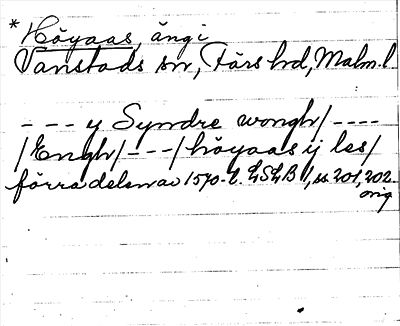 * Höyaas, äng i
Vanstads sn, Färs hd, Malm.l.
--- y Syndre wongh/----
/Engh/---/höyaas ij les/
förra delen av 1570-t. LSLB 1, ss 201, 202.
orig